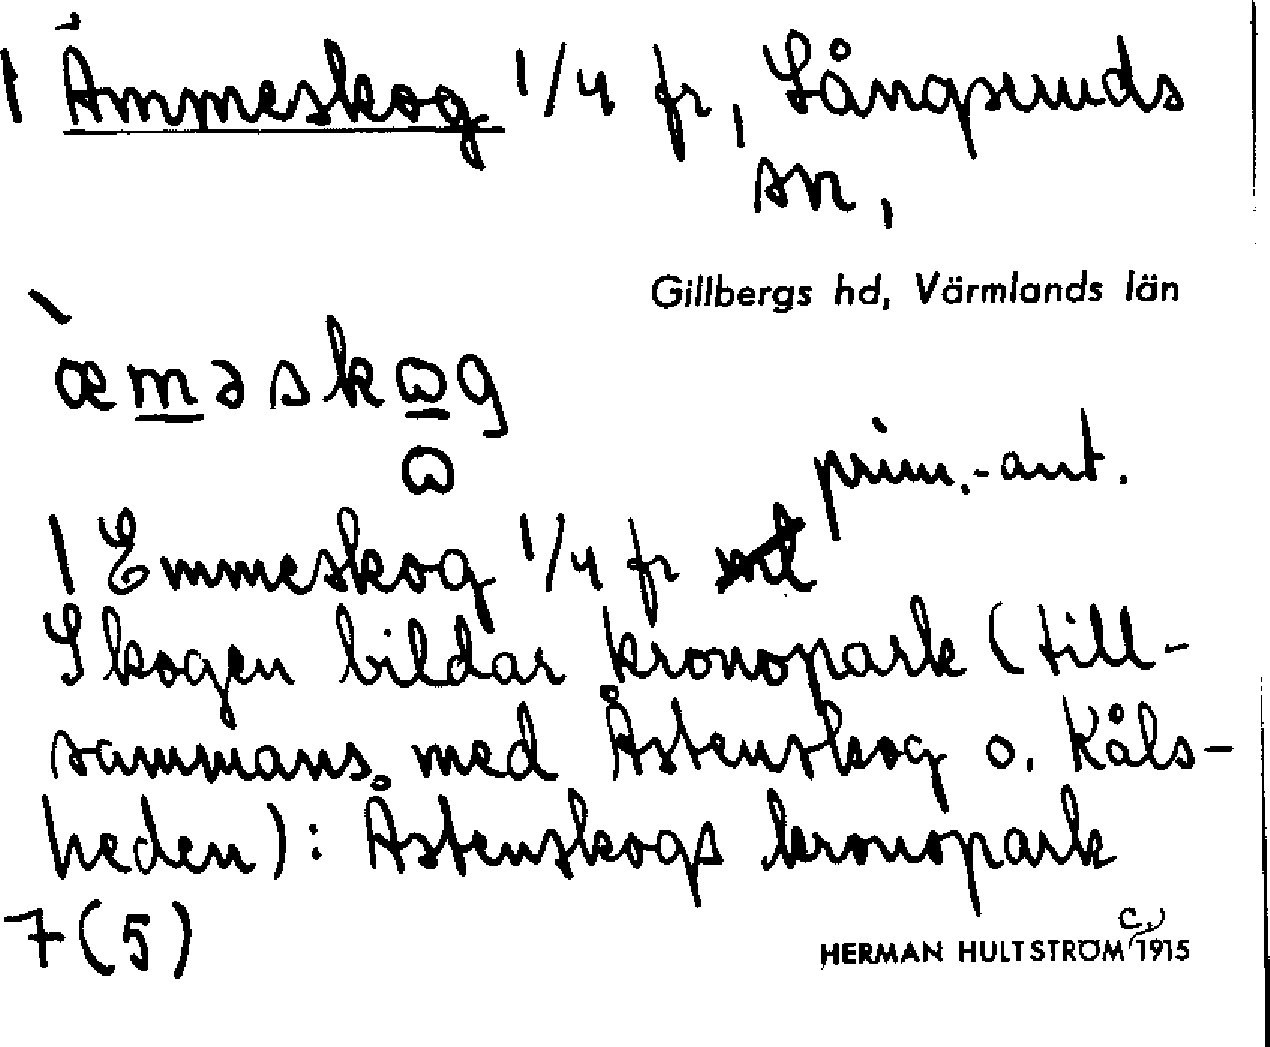 1 Ämmeskog 1/4 fr, Långseruds
sn,
Gillbergs hd, Värmlands län
æməskɷg
ɷ
prim.-ant.
1 Emmeskog 1/4 fr
Skogen bildar kronopark (till-
sammans med Åstenskog o. Kåls-
heden): Åstenskogs kronopark
7(5)
HERMAN HULTSTRÖM 1915